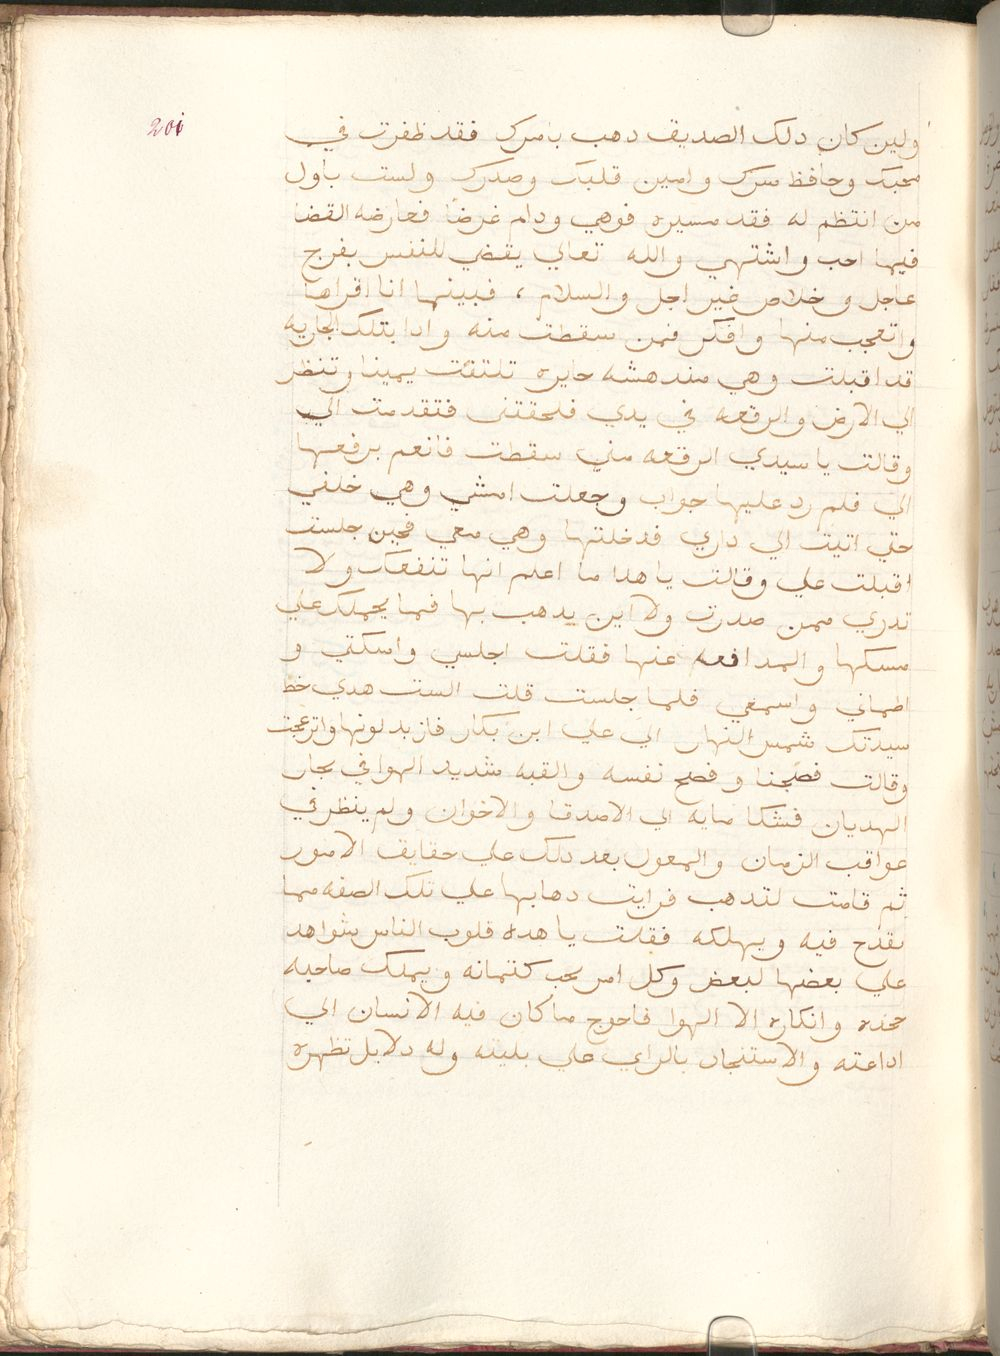 201
ولين كان دلك الصديق دهب بامرك فقد ظفرت في
محبك وحافظ سرك وامين قلبك وصدرك ولست باول
من انتظم له فقد مسيره فوهي ودام غرضا فعارضه القضا
فيها احب واشتهي والله تعالي يقضي للنفس بفرج
عاجل وخلاص غير اجل والسلام ، فبينما انا اقراها
واتعجب منها وافكر فمن سقطت منه وادا بتلك الجاريه
قد اقبلت وهي مندهشه حايره تلتفت يمينا وتنظر
الي الارض والرقعه في يدي فلحقتني فتقدمت الي
وقالت يا سيدي الرقعه مني سقطت فانعم برفعها
الي فلم رد عليها جواب وجعلت امشي وهي خلفي
حتي اتيت الي داري فدخلتها وهي معي فحين جلست
اقبلت علي وقالت يا هدا ما اعلم انها تنفعك ولا
تدري ممن صدرت ولا اين يدهب بها فما يحملك علي
مسكها والمدافعه عنها فقلت اجلسي واسكتي و
اطماني واسمعي فلما جلست قلت الست هدي خط
سيدتك شمس النهار الي علي ابن بكار فازبد لونها وانزعجت
وقالت فضحنا وفضح نفسه والقبه شديد الهوا في بحار
الهديان فشكا مابه الي الاصدقا والاخوان ولم ينظر في
عواقب الزمان والمعول بعد دلك علي حقايق الامور
ثم قامت لتدهب فرايت دهابها علي تلك الصفه مما
يقدح فيه ويهلكه فقلت يا هده قلوب الناس شواهد
علي بعضها لبعض وكل امر يحب كتمانه ويملك صاحبه
جحده وانكاره الا الهوا فاحوج ما كان فيه الانسان الي
اداعته والاستنجاد بالراي علي بليته وله دلايل تظهره